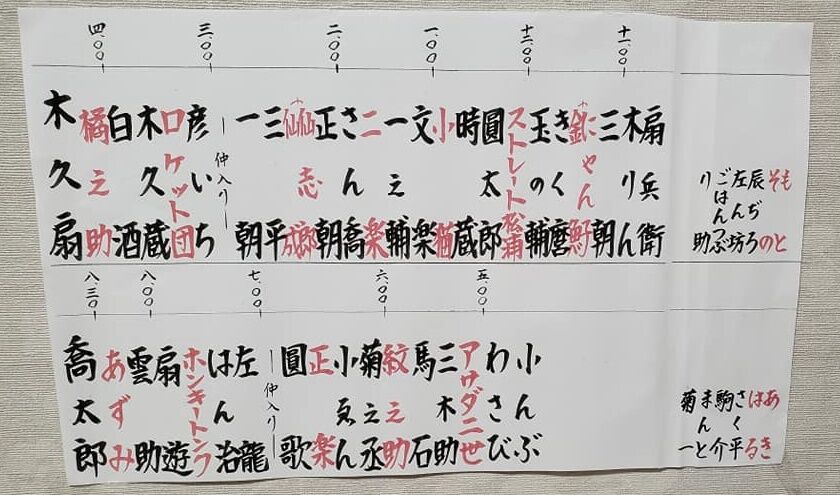 もと
その
辰ぢろ
左ん坊
ごはんつぶ
り助
十一.00
十二.00
一.00
二.00
三.00
四.00
扇兵衛
木りん
三朝
きく麿
玉の輔
ストレート松浦
圓太郎
時蔵
小猫
文楽
一之輔
二楽
さん喬
正朝
三平
一朝
仲入り
彦いち
ロケット団
木久蔵
白酒
橘之助
木久扇
あき
はる
さく平
駒介
まんと
菊一
五.00
六.00
七.00
八.00
八.30
小んぶ
わさび
アサダ二世
三木助
馬石
紋之助
菊之丞
小ゑん
正楽
圓歌
仲入り
左龍
はん治
ホンキートンク
扇遊
雲助
あずみ
喬太郎